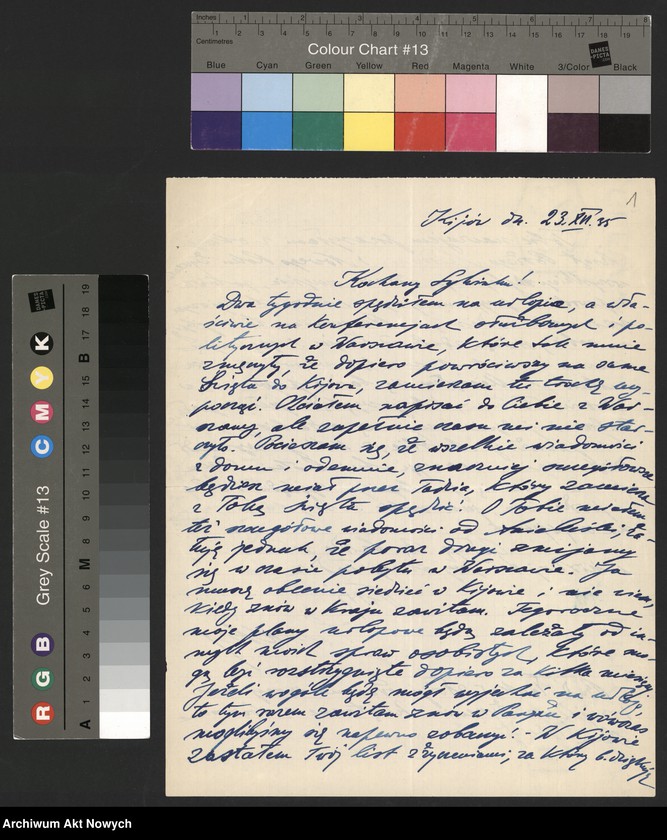 Inches 1 2 3 4 5 6 7 8
Centimetres 1 2 3 4 5 6 7 8 9 10 11 12 13 14 15 16 17 18 19
Colour Chart #13
DANES PICTA .COM
Blue Cyan Green Yellow Red Magenta White 3/Color Black
1
Kijów dn. 23.XII.35
Kochany
Dwa tygodnie spędziłem na urlopie, a wła-
ściwie na konferencjach służbowych i po-
litycznych w Warszawie, które tak mnie
zmęczyły, że dopiero powróciwszy na same
święta do Kijowa, zamierzam tu trochę wy-
począć. Chciałem napisać do Ciebie z War-
szawy ale zupełnie czasu mi nie star-
czyło. Pocieszam się, że wszelkie wiadomości
z domu i odemnie, znacznie
będziesz miał przez Tadzia, który zamierza
z Tobą święta spędzić. O Tobie miałem
też szczegółowe wiadomości od ża-
łuję jednak, że poraz drugi mijamy
się w czasie pobytu w Warszawie. Ja
muszę obecnie siedzieć w Kijowie i nie wiem,
kiedy znów w Kraju zawitam. Tegoroczne
moje plany urlopowe będą zależały od in-
nych moich spraw osobistych, które mo-
gą być rozstrzygnięte dopiero za kilka miesięcy.
Jeżeli wogóle będę mógł wyjechać na urlop,
to tym razem zawitam znów w Paryżu i wówczas
moglibyśmy się napewno zobaczyć. - W Kijowie
zastałem Twój list z życzeniami, za który b. dziękuję
Grey Scale #13
R G B C M Y K
A 1 2 3 4 5 6 M 8 9 10 11 12 13 14 15 B 17 18 19
Archiwum Akt Nowych